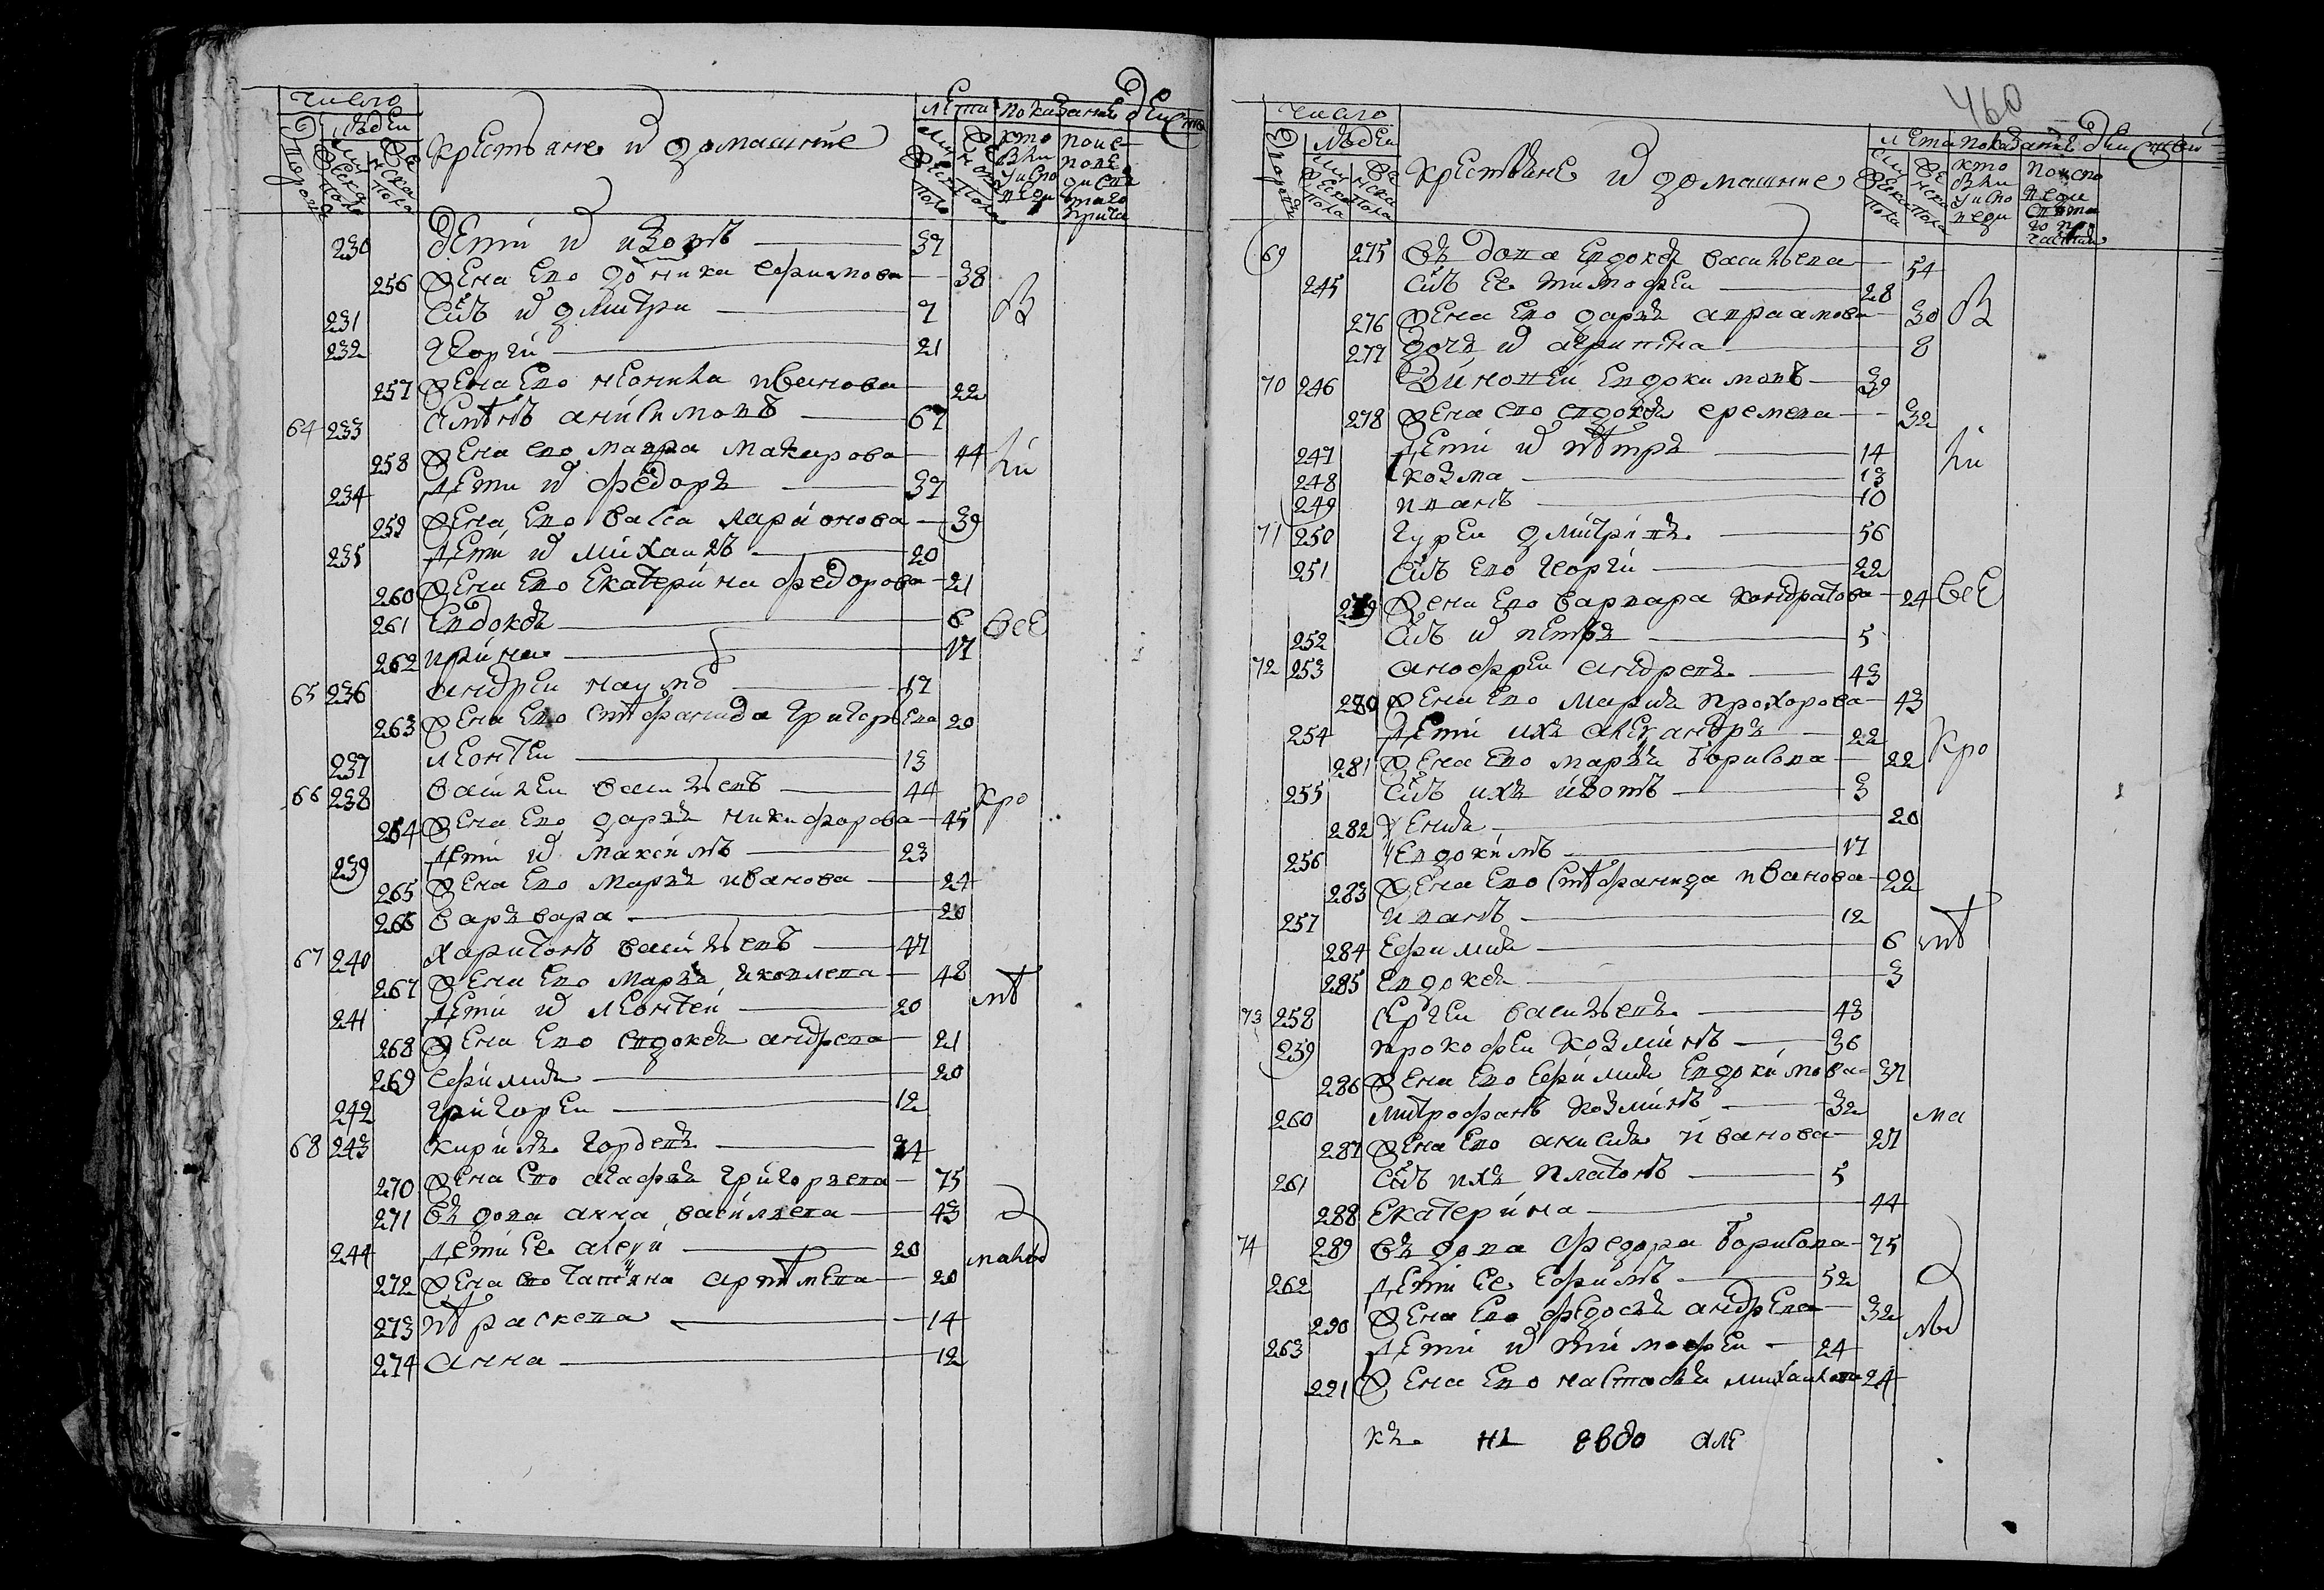 число
людеи
крестьяне и домашние
лета показание деиство
230 дети и изотъ 37
256 жена ево домника ефимова 38
231 сынъ и дмитри 7
232 георги 21
257 жена ево неонила иванова 22
64 233 семенъ анисимовъ 67
258 жена ево мавра макарова 44
234 дети и федоръ 37
259 жена ево васса ларионова 39
235 дети и михаилъ 20
260 жена ево екатерина федорова 21
261 евдокея 6
262 ирина 17
65 236 андреи наумо 17
263 жена ево стефанида григорьева 20
237 леонтеи 13
66 238 василеи васильевъ 44
264 жена ево дарья никифорова 45
239 дети и максимъ 23
265 жена ево марья иванова 24
266 варъвара 20
67 240 харитонъ васильевъ 47
267 жена ево марья яковлева 48
241 дети и леонтеи 20
268 жена ево евдокея андреева 21
269 ефимия 20
242 григореи 12
68 243 кирила гордеевъ 74
270 жена ево агафья григорьева 75
271 въдова анна васильева 43
244 дети ее алеѯи 20
272 жена ево татияна артемева 20
273 праскева 14
274 анна 12
460
число
людеи
крестьяне и домашние
лета показание деиство
69 275 въдова евдокея васильева 54
245 сынъ ее тимофеи 28
276 жена ево дарья авраамова 30
277 дочь и агрипина 8
70 246 зиновеи евдокимовъ 39
278 жена ево евдокея еремева 32
247 дети и петръ 14
248 козма 13
249 иванъ 10
71 250 гуреи дмитриевъ 56
251 сынъ ево георги 22
279 жена ево варвара кондратова 24
252 сынъ и петръ 5
72 253 анофреи андреевъ 43
280 жена ево мария прохорова 43
254 дети ихъ алеѯандръ 22
281 жена ево марья борисова 22
255 сынъ ихъ изотъ 3
282 ѯения 20
256 евдокимъ 17
283 жена ево стефанида иванова 22
257 иванъ 12
284 ефимия 6
285 евдокея 3
73 258 сергеи васильевъ 43
259 прокофеи козминъ 36
286 жена ево ефимия евдокимова 37
260 митрофанъ козминъ 32
287 жена ево анисия иванова 27
261 сынъ ихъ платонъ 5
288 екатерина 44
74 289 въдова федора борисова 75
262 дети ее ефимъ 52
290 жена ево федосья андреева 32
263 дети и тимофеи 24
291 жена ево настасия михаилова 24
къ не евдо але